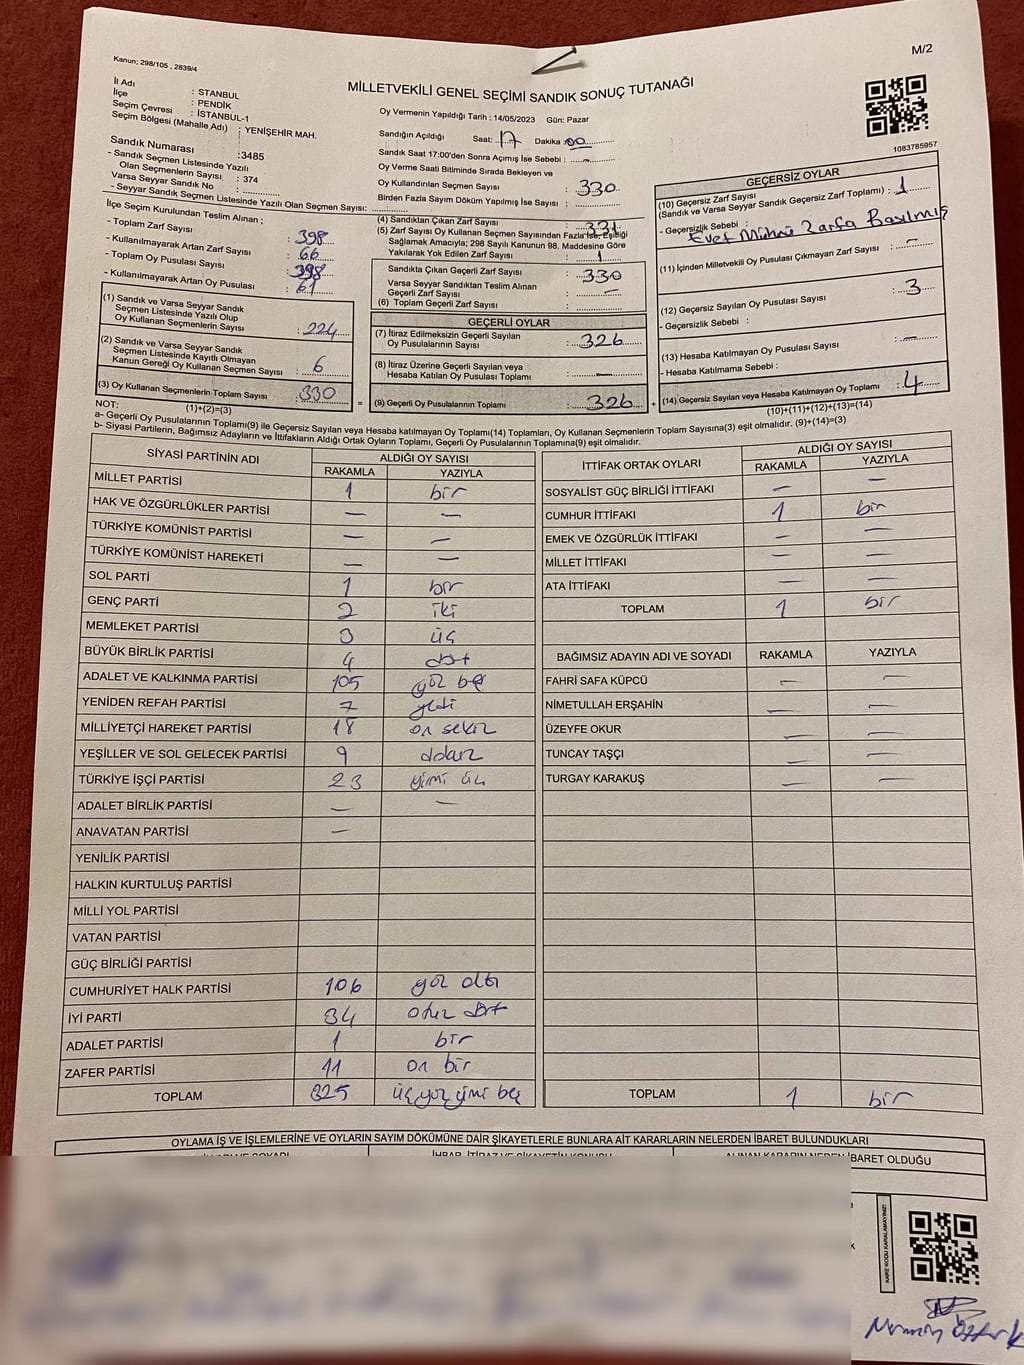 Kanun; 298/105 , 2839/4
M/2
MİLLETVEKİLİ GENEL SEÇİMİ SANDIK SONUÇ TUTANAĞI
İl Adı : STANBUL
İlçe : PENDİK
Seçim Çevresi : İSTANBUL-1
Seçim Bölgesi (Mahalle Adı) : YENİŞEHİR MAH.
Sandık Numarası :3485
- Sandık Seçmen Listesinde Yazılı
Olan Seçmenlerin Sayısı : 374
Varsa Seyyar Sandık No :
- Seyyar Sandık Seçmen Listesinde Yazılı Olan Seçmen Sayısı:
İlçe Seçim Kurulundan Teslim Alınan :
- Toplam Zarf Sayısı : 398
- Kullanılmayarak Artan Zarf Sayısı : 66
- Toplam Oy Pusulası Sayısı : 398
- Kullanılmayarak Artan Oy Pusulası : 61
(1) Sandık ve Varsa Seyyar Sandık
Seçmen Listesinde Yazılı Olup
Oy Kullanan Seçmenlerin Sayısı : 224
(2) Sandık ve Varsa Seyyar Sandık
Seçmen Listesinde Kayıtlı Olmayan
Kanun Gereği Oy Kullanan Seçmen Sayısı : 6
(3) Oy Kullanan Seçmenlerin Toplam Sayısı : 330
Oy Vermenin Yapıldığı Tarih : 14/05/2023 Gün: Pazar
Sandığın Açıldığı Saat: 17 Dakika : 00
Sandık Saat 17:00'den Sonra Açımış İse Sebebi : -
Oy Verme Saati Bitiminde Sırada Bekleyen ve
Oy Kullandırılan Seçmen Sayısı : 330
Birden Fazla Sayım Döküm Yapılmış İse Sayısı :
(4) Sandıktan Çıkan Zarf Sayısı : 331
(5) Zarf Sayısı Oy Kullanan Seçmen Sayısından Fazla İse, Eşitliği
Sağlamak Amacıyla; 298 Sayılı Kanunun 98. Maddesine Göre
Yakılarak Yok Edilen Zarf Sayısı : 1
Sandıkta Çıkan Geçerli Zarf Sayısı : 330
Varsa Seyyar Sandıktan Teslim Alınan
Geçerli Zarf Sayısı : —
(6) Toplam Geçerli Zarf Sayısı :
GEÇERLİ OYLAR
(7) İtiraz Edilmeksizin Geçerli Sayılan
Oy Pusulalarının Sayısı : 326
(8) İtiraz Üzerine Geçerli Sayılan veya
Hesaba Katılan Oy Pusulası Toplamı : —
= (9) Geçerli Oy Pusulalarının Toplamı : 326 +
1083785957
GEÇERSİZ OYLAR
(10) Geçersiz Zarf Sayısı
(Sandık ve Varsa Seyyar Sandık Geçersiz Zarf Toplamı) : 1
- Geçersizlik Sebebi : Evet Mührü Zarfa Basılmış
(11) İçinden Milletvekili Oy Pusulası Çıkmayan Zarf Sayısı : —
(12) Geçersiz Sayılan Oy Pusulası Sayısı : 3
- Geçersizlik Sebebi :
(13) Hesaba Katılmayan Oy Pusulası Sayısı : —
- Hesaba Katılmama Sebebi :
(14) Geçersiz Sayılan veya Hesaba Katılmayan Oy Toplamı : 4
NOT: (1)+(2)=(3)
(10)+(11)+(12)+(13)=(14)
a- Geçerli Oy Pusulalarının Toplamı(9) ile Geçersiz Sayılan veya Hesaba katılmayan Oy Toplamı(14) Toplamları, Oy Kullanan Seçmenlerin Toplam Sayısına(3) eşit olmalıdır. (9)+(14)=(3)
b- Siyasi Partilerin, Bağımsız Adayların ve İttifakların Aldığı Ortak Oyların Toplamı, Geçerli Oy Pusulalarının Toplamına(9) eşit olmalıdır.
SİYASİ PARTİNİN ADI ALDIĞI OY SAYISI
RAKAMLA YAZIYLA
MİLLET PARTİSİ 1 bir
HAK VE ÖZGÜRLÜKLER PARTİSİ — —
TÜRKİYE KOMÜNİST PARTİSİ — —
TÜRKİYE KOMÜNİST HAREKETİ — —
SOL PARTİ 1 bir
GENÇ PARTİ 2 iki
MEMLEKET PARTİSİ 3 üç
BÜYÜK BİRLİK PARTİSİ 4 dört
ADALET VE KALKINMA PARTİSİ 105 yüz beş
YENİDEN REFAH PARTİSİ 7 yedi
MİLLİYETÇİ HAREKET PARTİSİ 18 on sekiz
YEŞİLLER VE SOL GELECEK PARTİSİ 9 dokuz
TÜRKİYE İŞÇİ PARTİSİ 23 yirmi üç
ADALET BİRLİK PARTİSİ — —
ANAVATAN PARTİSİ —
YENİLİK PARTİSİ
HALKIN KURTULUŞ PARTİSİ
MİLLİ YOL PARTİSİ
VATAN PARTİSİ
GÜÇ BİRLİĞİ PARTİSİ
CUMHURİYET HALK PARTİSİ 106 yüz altı
İYİ PARTİ 34 otuz dört
ADALET PARTİSİ 1 bir
ZAFER PARTİSİ 11 on bir
TOPLAM 325 üç yüz yirmi beş
İTTİFAK ORTAK OYLARI ALDIĞI OY SAYISI
RAKAMLA YAZIYLA
SOSYALİST GÜÇ BİRLİĞİ İTTİFAKI — —
CUMHUR İTTİFAKI 1 bir
EMEK VE ÖZGÜRLÜK İTTİFAKI — —
MİLLET İTTİFAKI — —
ATA İTTİFAKI — —
TOPLAM 1 bir
BAĞIMSIZ ADAYIN ADI VE SOYADI RAKAMLA YAZIYLA
FAHRİ SAFA KÜPCÜ — —
NİMETULLAH ERŞAHİN — —
ÜZEYFE OKUR — —
TUNCAY TAŞÇI — —
TURGAY KARAKUŞ — —
TOPLAM 1 bir
OYLAMA İŞ VE İŞLEMLERİNE VE OYLARIN SAYIM DÖKÜMÜNE DAİR ŞİKAYETLERLE BUNLARA AİT KARARLARIN NELERDEN İBARET BULUNDUKLARI
İHBAR, İTİRAZ VE ŞİKAYETİN KONUSU ALINAN KARARIN NEDEN İBARET OLDUĞU
KARE KODU KARALAMAYINIZ!